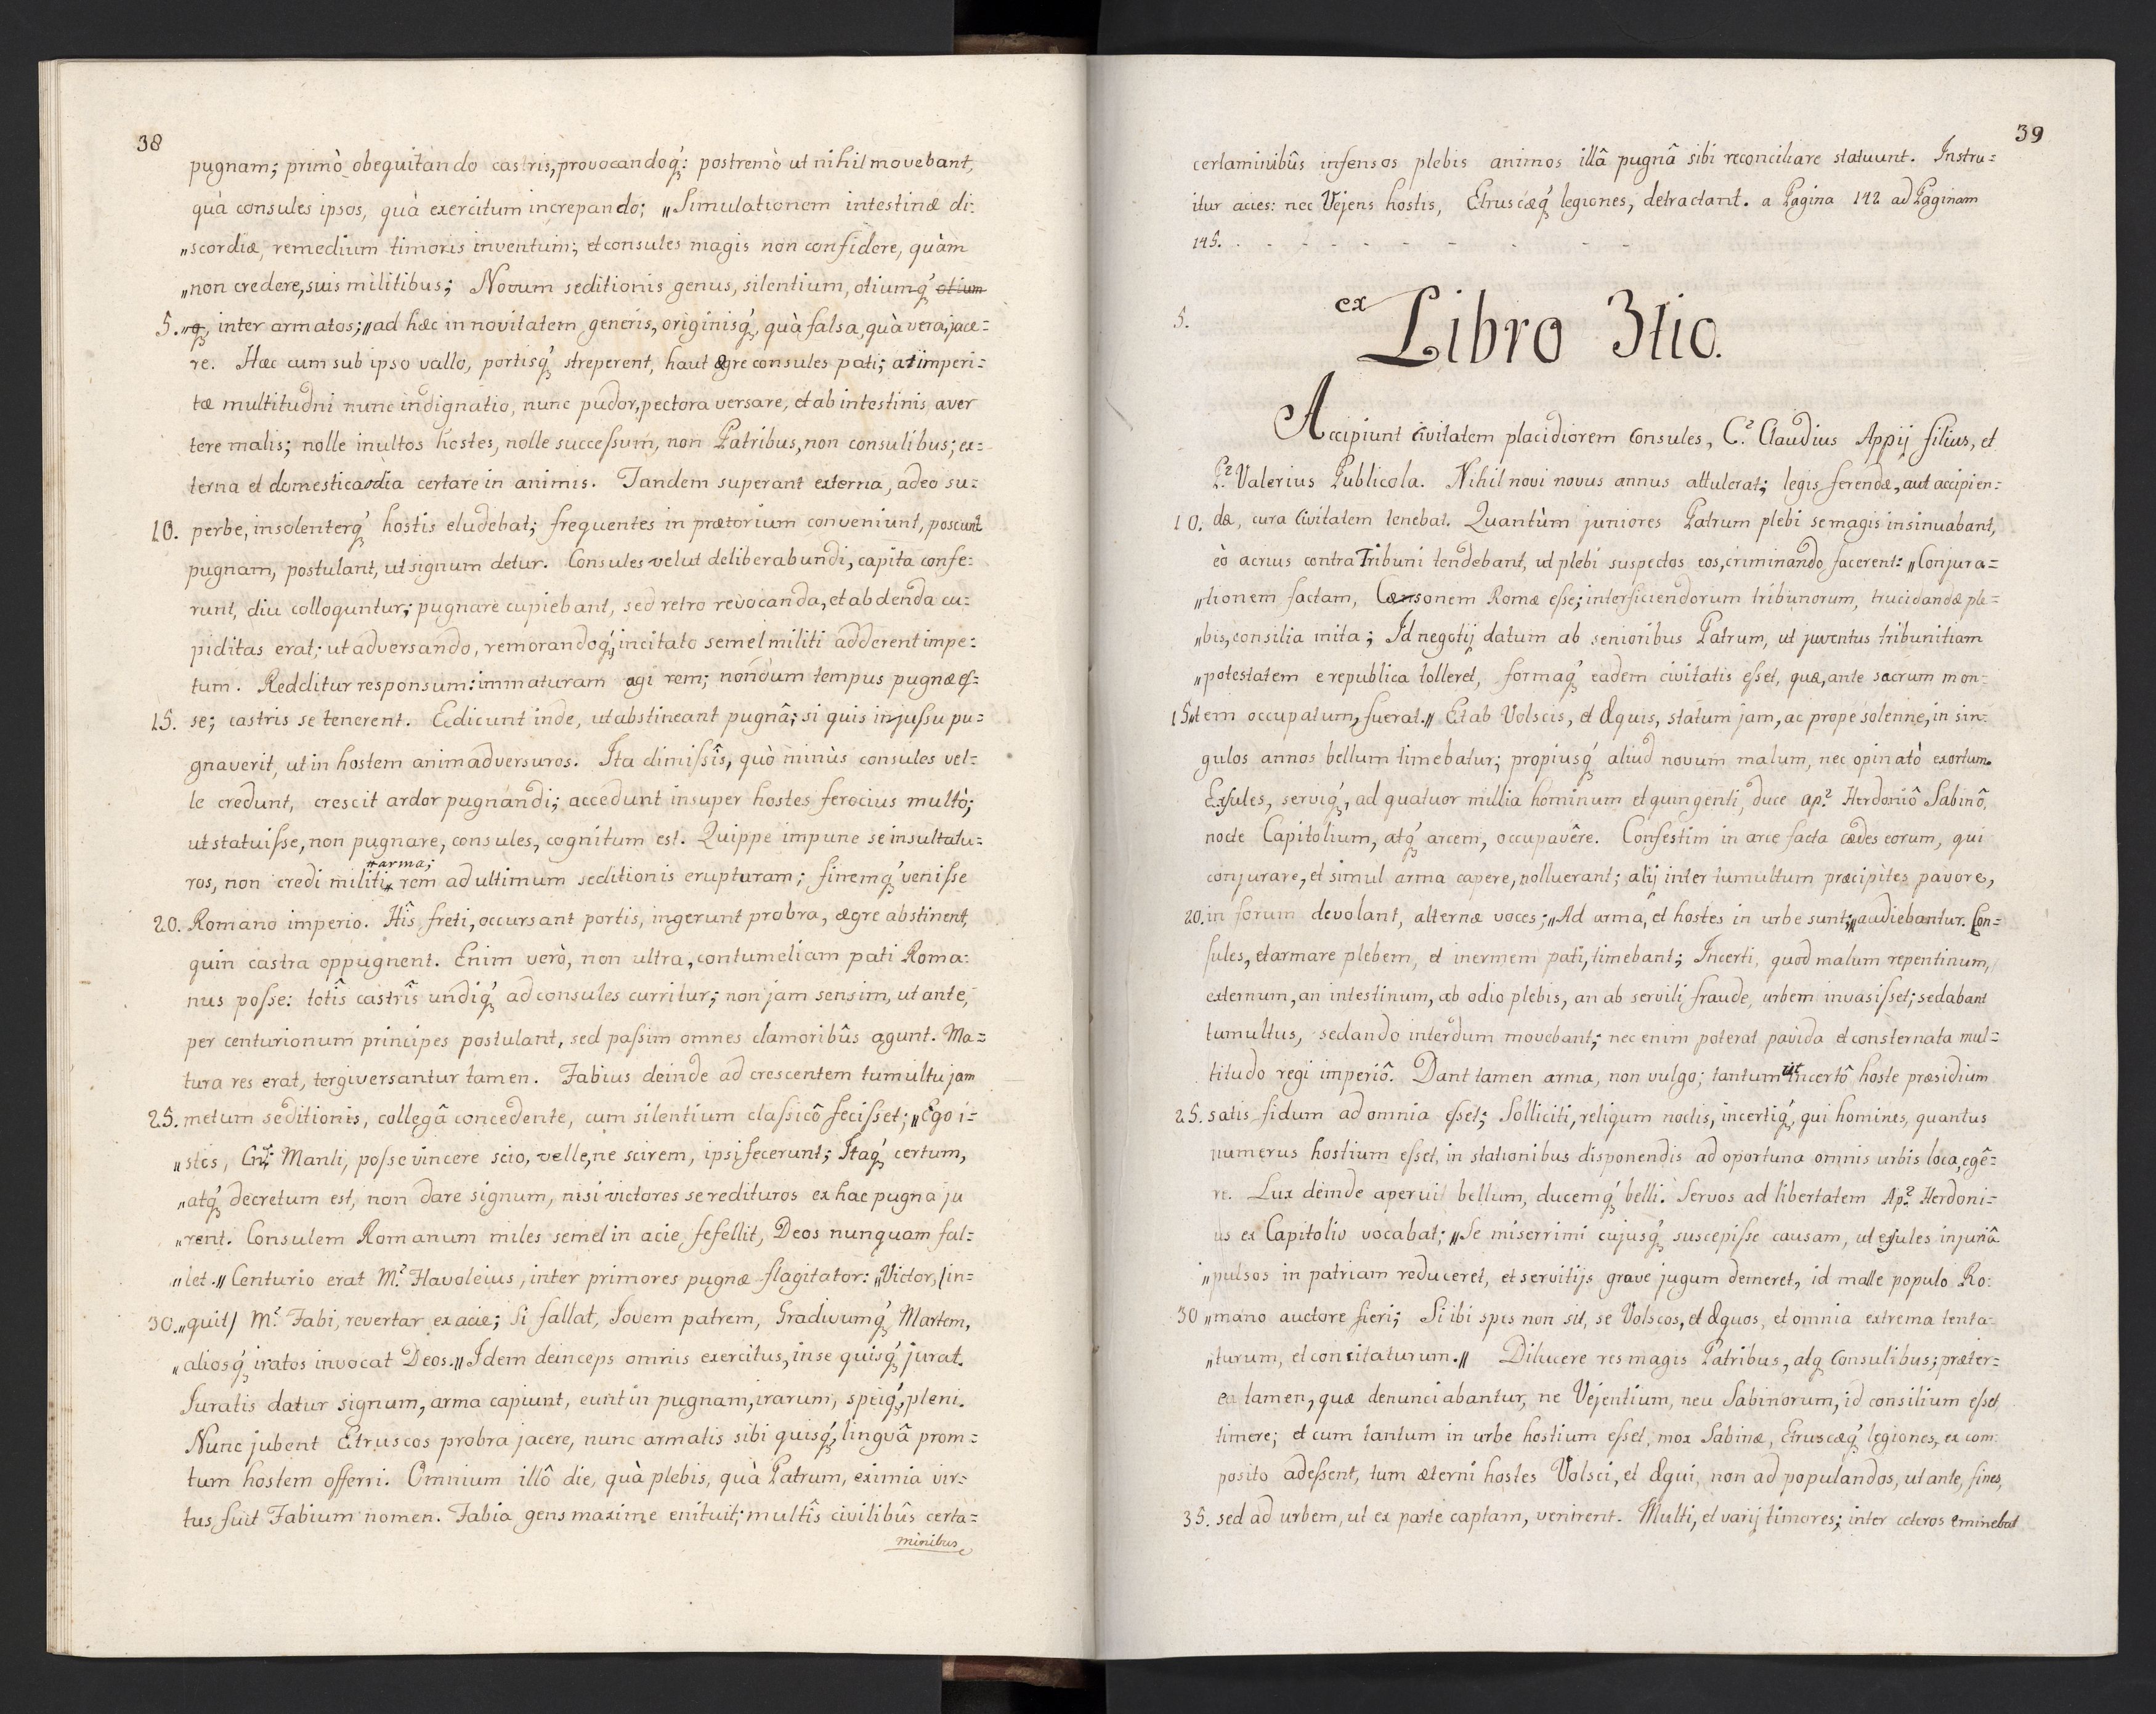 38
pugnam; primò obequitando castris, provocandoq́; postremò ut nihil movebant,
quà consules ipsos, quà exercitum increpando; „Simulationem intestinæ di-
„scordiæ, remedium timoris inventum; et consules magis non confidere, quàm
„non credere, suis militibus; Novum seditionis genus, silentium, otiumq́ otium
5. „q́, inter armatos; „ad hæc in novitatem generis, originisq́, quà falsa, quà vera, jace=
re. Hæc cum sub ipso vallo, portisq́ streperent, haut ægre consules pati; at imperi=
tæ multitudni nunc indignatio, nunc pudor, pectora versare, et ab intestinis aver
tere malis; nolle inultos hostes, nolle successum, non Patribus, non consulibus; ex=
terna et domestica odia certare in animis. Tandem superant externa, adeo su=
10. perbe, insolenterq́ hostis eludebat; frequentes in prætorium conveniunt, poscunt
pugnam, postulant, ut signum detur. Consules velut deliberabundi, capita confe=
runt, diu colloquntur; pugnare cupiebant, sed retro revocanda, et abdenda cu=
piditas erat; ut adversando, remorandoq́, incitato semel militi adderent impe=
tum. Redditur responsum: immaturam agi rem; nondum tempus pugnæ es=
15. se; castris se tenerent. Edicunt inde, ut abstineant pugnâ; si quis injussu pu=
gnaverit, ut in hostem animadversuros. Ita dimissîs, quò minùs consules vel=
le credunt, crescit ardor pugnandi; accedunt insuper hostes ferocius multò;
ut statuisse, non pugnare, consules, cognitum est. Quippe impune se insultatu=
arma;
ros, non credi militi rem ad ultimum seditionis erupturam; finemq́ venisse
20. Romano imperio. Hîs freti, occursant portis, ingerunt probra, ægre abstinent,
quin castra oppugnent. Enim verò, non ultra, contumeliam pati Roma=
nus posse: totîs castrîs undiq́ ad consules curritur; non jam sensim, ut ante,
per centurionum principes postulant, sed passim omnes clamoribûs agunt. Ma=
tura res erat, tergiversantur tamen. Fabius deinde ad crescentem tumultu jam
25. metum seditionis, collegâ concedente, cum silentium classicô fecisset; „Ego i=
„stos, Cn: Manli, posse vincere scio, velle, ne scirem, ipsi fecerunt; Itaq́ certum,
„atq́ decretum est, non dare signum, nisi victores se redituros ex hac pugna ju
„rent. Consulem Romanum miles semel in acie fefellit, Deos nunquam fal=
„let.„ Centurio erat M.² Flavoleius, inter primores pugnæ flagitator: „Victor, /in=
30. „quit/ M.² Fabi, revertar ex acie; Si fallat, Jovem patrem, Gradivumq́ Martem,
„aliosq́ iratos invocat Deos.„ Idem deinceps omnis exercitus, in se quisq́ jurat.
Juratis datur signum, arma capiunt, eunt in pugnam, irarum, speiq́, pleni.
Nunc jubent Etruscos probra jacere, nunc armatis sibi quisq́, linguâ prom=
tum hostem offerri. Omnium illô die, quà plebis, quà Patrum, eximia vir=
tus fuit Fabium nomen. Fabia gens maxime enituit; multîs civilibûs certa=
minibus
39
certaminibûs infensos plebis animos illâ pugnâ sibi reconciliare statuunt. Instru=
itur acies: nec Vejens hostis, Etruscæq́ legiones, detractant. a Pagina 142 ad Paginam
145. . - - - - - - - -
5.
ex
Libro 3tio.
Accipiunt civitatem placidiorem consules, C.² Claudius Appij filius, et
P.² Valerius Publicola. Nihil novi novus annus attulerat; legis ferendæ, aut accipien=
10. dæ, cura civitatem tenebat. Quantùm juniores Patrum plebi se magis insinuabant,
eò acrius contra Tribuni tendebant, ut plebi suspectos eos, criminando, facerent: „Conjura=
„tionem factam, Cæsonem Romæ esse; interficiendorum tribunorum, trucidandæ ple=
„bis, consilia inita; Id negotij datum ab senioribus Patrum, ut juventus tribunitiam
„potestatem e republica tolleret, formaq́ eadem civitatis esset, quæ, ante sacrum mon=
15. „tem occupatum, fuerat.„ Et ab Volscis, et Æquis, statum jam, ac prope solenne, in sin=
gulos annos bellum timebatur; propiusq́ aliud novum malum, nec opinatò exortum.
Exsules, serviq́, ad quatuor millia hominum et quingenti, duce Ap.² Herdoniô Sabinô,
nocte Capitolium, atq́ arcem, occupavêre. Confestim in arce facta cædes eorum, qui
conjurare, et simul arma capere, nolluerant; alij inter tumultum præcipites pavore,
20. in forum devolant, alternæ voces; „Ad arma, et hostes in urbe sunt;„ audiebantur. Con=
sules, et armare plebem, et inermem pati, timebant; Incerti, quod malum repentinum,
externum, an intestinum, ab odio plebis, an ab servili fraude, urbem invasisset; sedabant
tumultus, sedando interdum movebant; nec enim poterat pavida et consternata mul=
titudo regi imperiô. Dant tamen arma, non vulgo; tantum ut incertô hoste præsidium
25. satis fidum ad omnia esset; Solliciti, reliqum noctis, incertiq́, qui homines, quantus
numerus hostium esset, in stationibus disponendis ad oportuna omnis urbis loca, egê=
re. Lux deinde aperuit bellum, ducemq́ belli. Servos ad libertatem Ap.² Herdoni=
us ex Capitolio vocabat; „Se miserrimi cujusq́ suscepisse causam, ut exsules injuriâ
„pulsos in patriam reduceret, et servitijs grave jugum demeret, id malle populo Ro=
30 „mano auctore fieri; Si ibi spes non sit, se Volscos, et Æquos, et omnia extrema tenta=
„turum, et concitaturum.„ Dilucere res magis Patribus, atq́ Consulibus; præter=
ea tamen, quæ denunciabantur, ne Vejentium, neu Sabinorum, id consilium esset
timere; et cum tantum in urbe hostium esset, mox Sabinæ, Etruscæq́ legiones, ex com=
posito adessent, tum æterni hostes Volsci, et Æqui, non ad populandos, ut ante, fines,
35. sed ad urbem, ut ex parte captam, venirent. Multi, et varij timores; inter ceteros eminebat